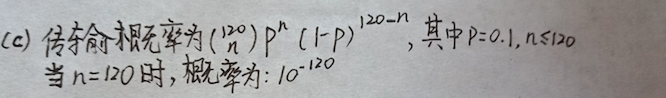 (c) 传输概率为(120 n) pⁿ (1-p)^120-n, 其中P=0.1, n≤120
当n=120时, 概率为: 10^-120